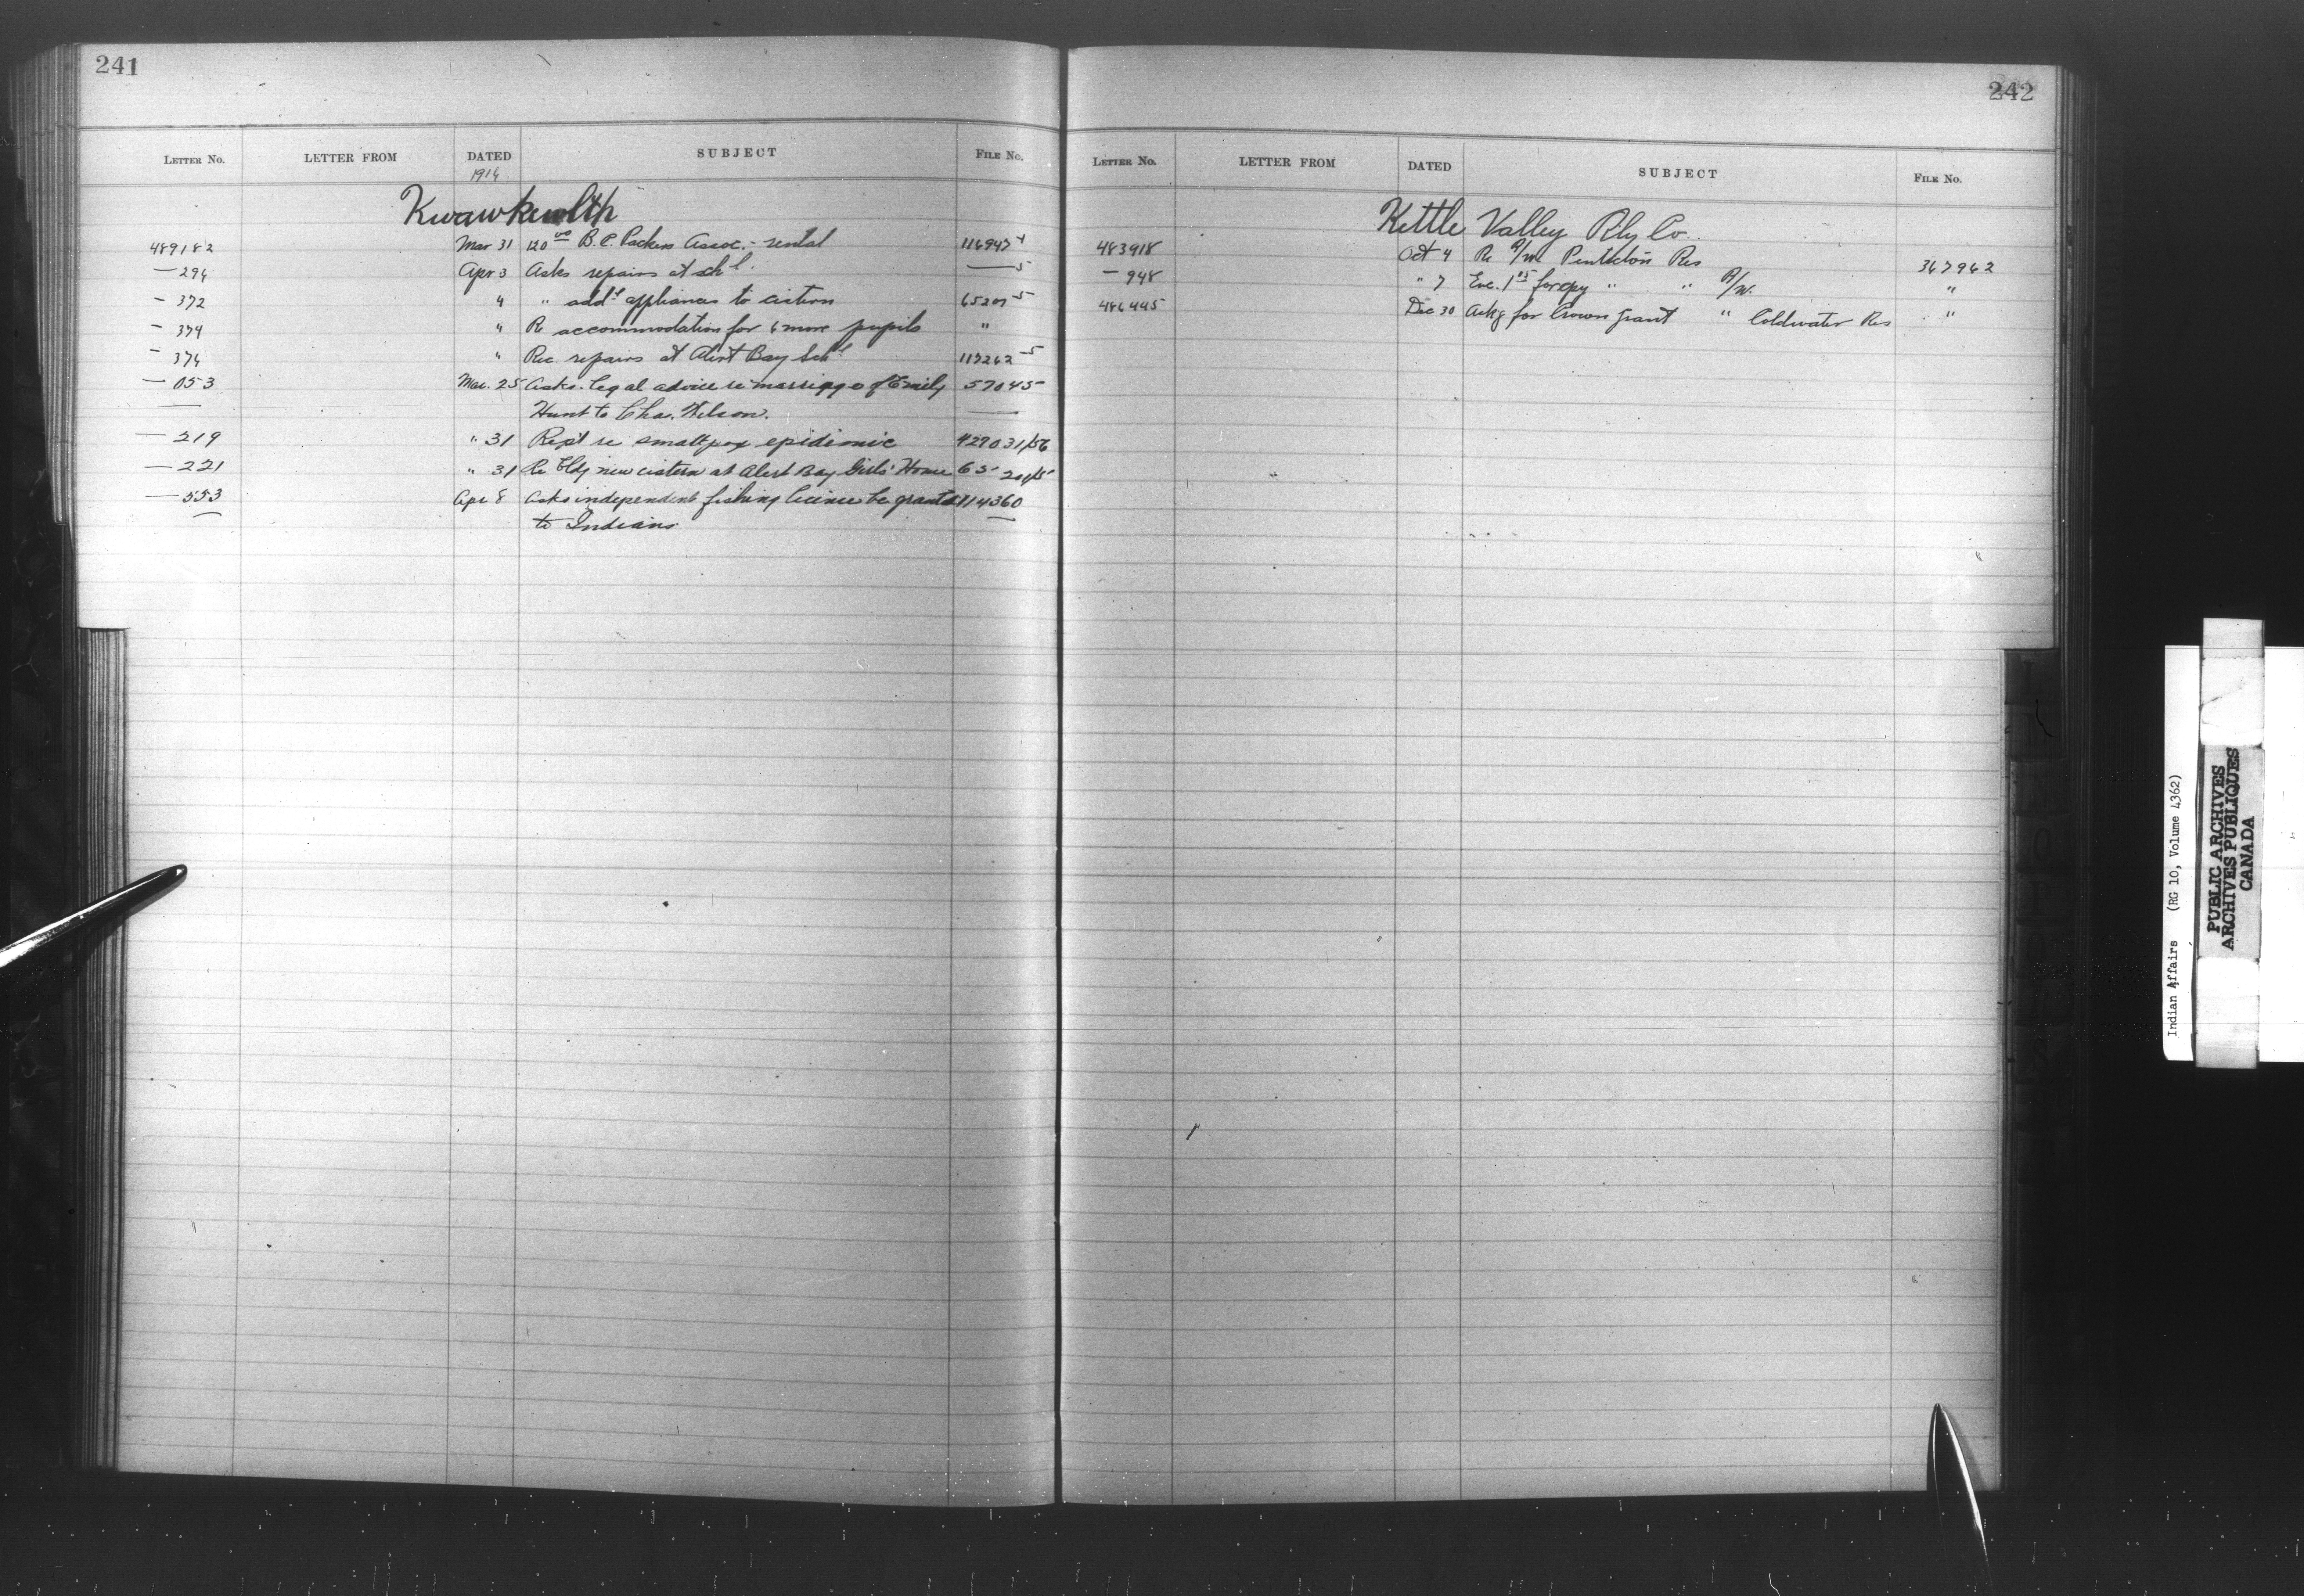 241
LETTER No. LETTER FROM DATED SUBJECT FILE No.
1914
Kwawkewlth
489182 Mar 31 120 00 B.C. Packers Assoc. - rental 116947-4
— 294 Apr 3 Asks repairs at schl. — 5
— 372 4 " addl appliances to cistern 65207-5
— 374 " Re accommodation for 6 more pupils "
— 376 " Rec. repairs at Alert Bay Schl 117262-5
— 053 Mar. 25 Asks legal advice re marriage of Emily 57045-
— Hunt to Chas. Wilson. —
— 219 " 31 Rept re smallpox epidemic 427031/56
— 221 " 31 Re bldg new cistern at Alert Bay Girls' Home 65-20 1/5
— 553 Apr 8 Asks independent fishing license be granted 114360
— to Indians —
242
LETTER No. LETTER FROM DATED SUBJECT FILE No.
Kettle Valley Rly Co.
483918 Oct 4 Re R/W Penticton Res 367962
— 948 " 7 Enc. 1 15 for cpy " " R/W. "
486445 Dec 30 Askg for Crown grant " Coldwater Res "
Indian Affairs (RG 10, Volume 4362)
PUBLIC ARCHIVES
ARCHIVES PUBLIQUES
CANADA